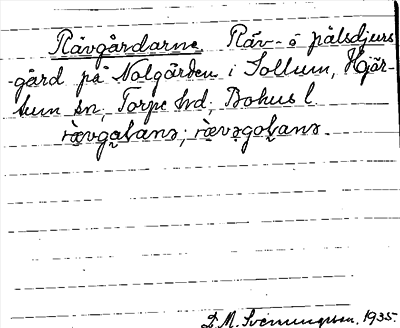 Rävgårdarne Räv- o pälsdjurs
-gård på Nolgården i Sollum, Hjär-
tum sn, Torpe hd, Bohus l.
D.M. Svenningsson, 1935.